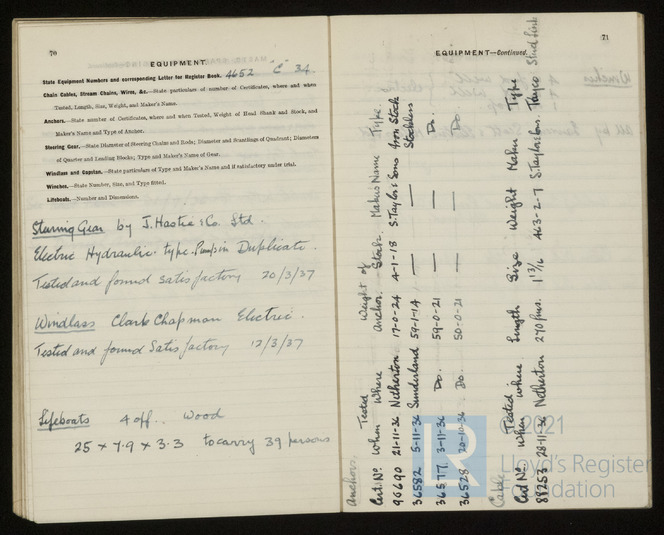 70
EQUIPMENT.
State Equipment Numbers and corresponding Letter for Register Book. 4652 "C" 34.
Chain Cables, Stream Chains, Wires, &c.—State particulars of number of Certificates, where and when
Tested, Length, Size, Weight, and Maker's Name.
Anchors.—State number of Certificates, where and when Tested, Weight of Head Shank and Stock, and
Maker's Name and Type of Anchor.
Steering Gear.—State Diameter of Steering Chains and Rods; Diameter and Scantlings of Quadrant; Diameters
of Quarter and Leading Blocks; Type and Maker's Name of Gear.
Windlass and Capstan.—State particulars of Type and Maker's Name and if satisfactory under trial.
Winches.—State Number, Size, and Type fitted.
Lifeboats.—Number and Dimensions.
Steering Gear by J. Hastie & Co. Ltd.
Electric Hydraulic type. Pumps in Duplicate.
Tested and found Satisfactory 20/3/37
Windlass Clarke Chapman Electric.
Tested and found Satisfactory 12/3/37
Lifeboats 4 off. Wood
25 x 7.9 x 3.3 to carry 39 persons
71
EQUIPMENT—Continued.
Anchors.
Tested Weight of
Cert. No. When Where Anchor. Stock. Makers Name Type
96690 21-11-36 Netherton 17-0-24 4-1-18 S. Taylor & Sons Iron Stock
36582 5-11-36 Sunderland 59-1-14 — — Stockless
36577 3-11-36 Do. 59-0-21 — — Do.
36528 20-10-36 Do. 50-0-21 — — Do.
Cable
Tested
Cert No. When where Length Size Weight Makers Type
88253 28-11-36 Netherton 270 fms. 1 13/16 463-2-7 S. Taylor & Sons. Tayco Stud Link
© 2021
LR
Lloyd's Register
Foundation